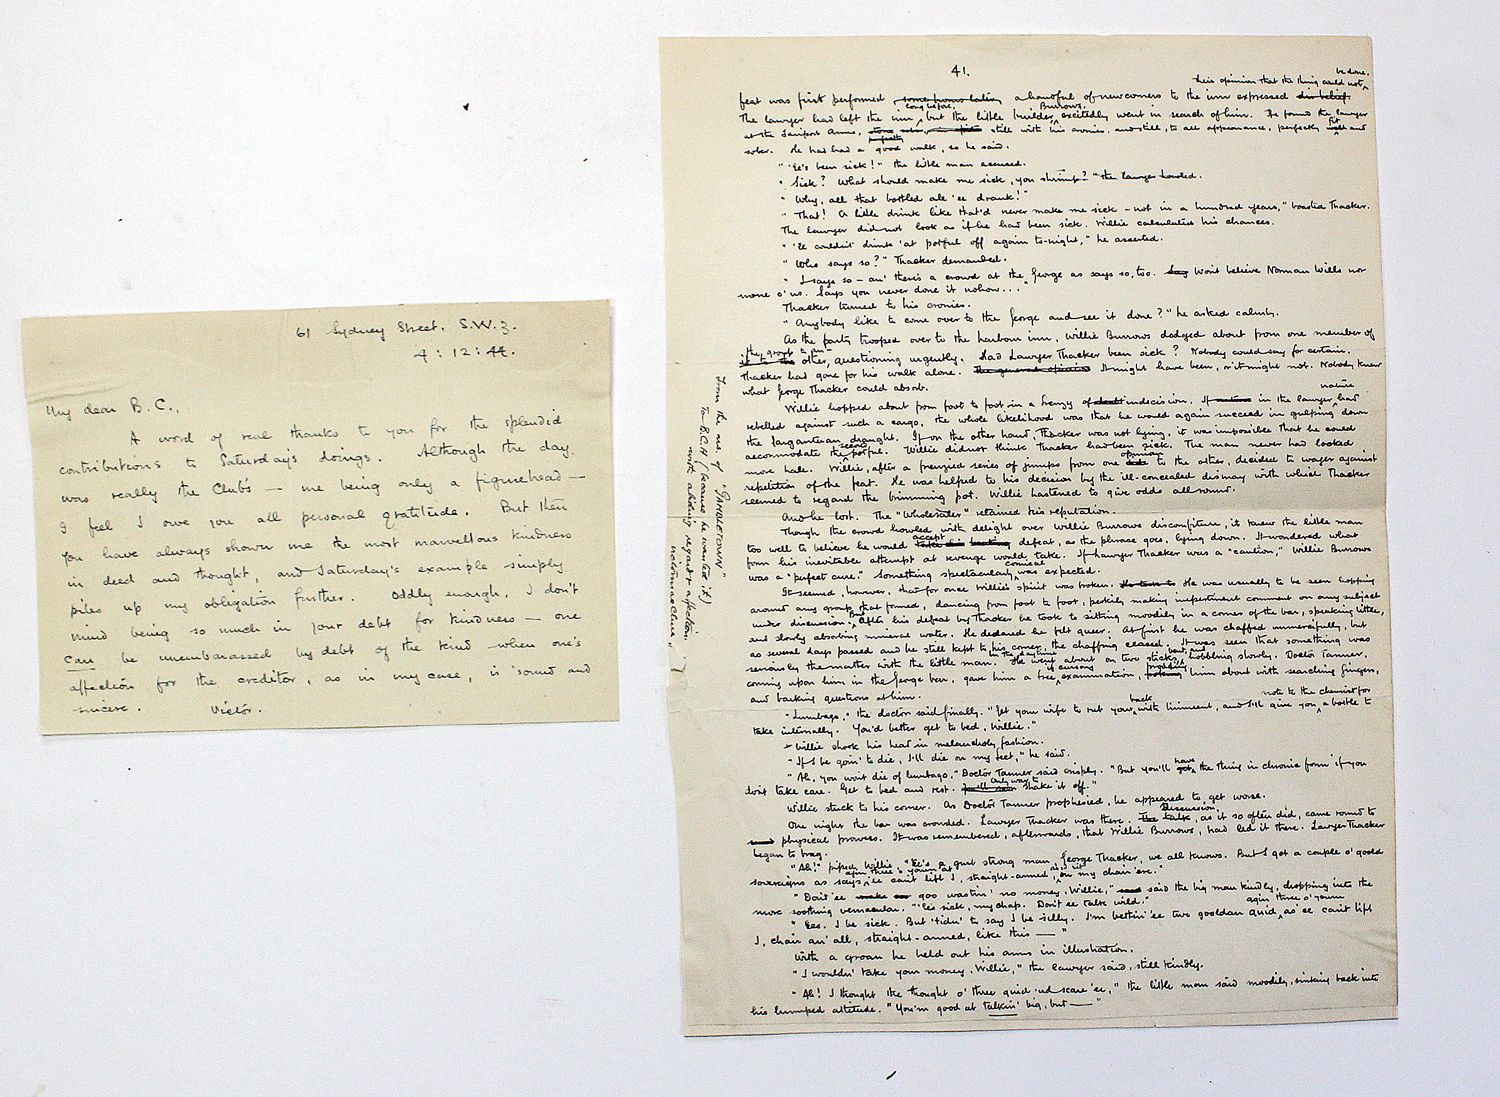 61 Sydney Street. S.W.3.
4 : 12 : 44.
My dear B.C.,
A word of real thanks to you for the splendid
contributions to Saturday's doings. Although the day
was really the Club's — me being only a figurehead —
I feel I owe you all personal gratitude. But then
you have always shown me the most marvellous kindness
in deed and thought, and Saturday's example simply
piles up my obligation further. Oddly enough, I don't
mind being so much in your debt for kindness — one
can be unembarassed by debt of the kind when one's
affection for the creditor, as in my case, is sound and
sincere. Victor.
From the ms. of "GAMBLETOWN"
To B.C.H (because he wanted it)
with abiding regard & affection.
41.
be done.
their opinion that the thing could not
feat was first performed some hours later, a handful of newcomers to the inn expressed disbelief.
long before. Burrows,
The lawyer had left the inn, but the little builder, excitedly went in search of him. He found the lawyer
at the Saniport Arms, still with his cronies, and still, to all appearance, perfectly fit and
perfectly
sober. He had had a good walk, so he said.
"'Ee's been sick!" the little man accused.
"Sick? What should make me sick, you shrimp?" the lawyer howled.
"Why, all that bottled ale 'ee drank!"
"That! A little drink like that'd never make me sick – not in a hundred years," boasted Thacker.
The lawyer did not look as if he had been sick. Willie calculated his chances.
"'Ee couldn't drink 'at potful off again to-night," he asserted.
"Who says so?" Thacker demanded.
"I says so – an' there's a crowd at the George as says so, too. Say Won't believe Norman Wills nor
none o' us. Says you never done it nohow..."
Thacker turned to his cronies.
"Anybody like to come over to the George and see it done?" he asked calmly.
As the party trooped over to the harbour inn, Willie Burrows dodged about from one member of
the group to an-
other, questioning urgently. Had Lawyer Thacker been sick? Nobody could say for certain.
Thacker had gone for his walk alone. The general opinion It might have been, or it might not. Nobody knew
what George Thacker could absorb.
nature
Willie hopped about from foot to foot in a frenzy of doubt indecision. If nature in the lawyer had
rebelled against such a cargo, the whole likelihood was that he would again succeed in gulping down
the Gargantuan draught. If, on the other hand, Thacker was not lying, it was impossible that he could
second
accommodate the potful. Willie did not think Thacker had been sick. The man never had looked
opinion
more hale. Willie, after a frenzied series of jumps from one to the other, decided to wager against
repetition of the feat. He was helped to his decision by the ill-concealed dismay with which Thacker
seemed to regard the brimming pot. Willie hastened to give odds all round.
And he lost. The "Wholesaler" retained his reputation.
Though the crowd howled with delight over Willie Burrows discomfiture, it knew the little man
accept
too well to believe he would take his beating defeat, as the phrase goes, lying down. It wondered what
form his inevitable attempt at revenge would take. If Lawyer Thacker was a "caution," Willie Burrows
comical
was a "perfect cure." Something spectacularly was expected.
It seemed, however, that for once Willie's spirit was broken. He was usually to be seen hopping
around any group that formed, dancing from foot to foot, perkily making impertinent comment on any subject
But
under discussion. After his defeat by Thacker he took to sitting moodily in a corner of the bar, speaking little,
and slowly absorbing mineral water. He declared he felt queer. At first he was chaffed unmercifully, but
as several days passed and he still kept to his corner, the chaffing ceased. It was seen that something was
the daytime bent, and
seriously the matter with the little man. He went about on two sticks, hobbling slowly. Doctor Tanner,
if cursory prodding
coming upon him in the George bar, gave him a free, examination, poking him about with searching fingers,
and barking questions at him.
back note to the chemist for
"Lumbago," the doctor said finally. "Get your wife to rub your with liniment, and I'll give you a bottle to
take internally. You'd better get to bed, Willie."
Willie shook his head in melancholy fashion.
"If I be goin' to die, I'll die on my feet," he said.
have
"Ah, you won't die of lumbago," Doctor Tanner said crisply. "But you'll get the thing in chronic form if you
only way to
don't take care. Get to bed and rest. You'll soon shake it off."
Willie stuck to his corner. As Doctor Tanner prophesied, he appeared to get worse.
Discussion,
One night the bar was crowded. Lawyer Thacker was there. The talk, as it so often did, came round to
physical prowess. It was remembered, afterwards, that Willie Burrows, had led it there. Lawyer Thacker
began to brag.
"Ah!" piped Willie. "'Ee's a gurt strong man, George Thacker, we all knows. But I got a couple o' goold
agin three o' yourn at as us it
sovereigns as says 'ee can't lift I, straight-armed, on my chair 'ere."
"Don't 'ee make no goo wastin' no money, Willie," said the big man kindly, dropping into the
more soothing vernacular. "'Ee's sick, my chap. Don't 'ee talk wild."
agin three o' yourn
"Ees. I be sick. But 'tidn' to say I be silly. I'm bettin' 'ee two gooldan quid, as 'ee can't lift
I, chair an' all, straight-armed, like this —"
With a groan he held out his arms in illustration.
"I wouldn' take your money, Willie," the lawyer said, still kindly.
"Ah! I thought the thought o' three quid 'ud scare 'ee," the little man said moodily, sinking back into
his humped attitude. "You'm good at talkin' big, but —"